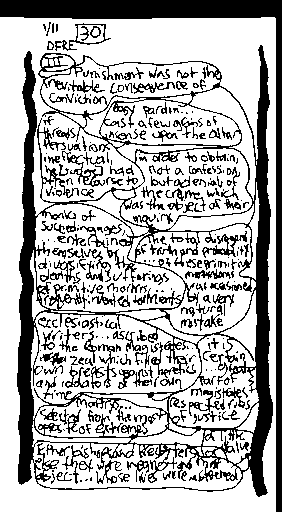 1/11 30
DFRE
III
Punishment was not the
inevitable consequence of
conviction
easy pardon...
cast a few grains of
incense upon the altar
if
threats/
persuasions
ineffectual,
had
often recourse to
violence
in order to obtain,
not a confession,
but a denial of
the crime which
was the object of their
inquiry
monks of
succeeding ages
... entertained
themselves by
diversifying the
deaths and sufferings
of primitive martyrs,
frequently invented torments
the total disregard
of truth and probability
of these primitive
was occasioned
by a very
natural
mistake
ecclesiastical
writers... ascribed
to the Roman magistates
zeal which filled their
own breasts against heretics
and idolators of their own
time
it is
certain
greater
part of
magistates
respected
of justice
martyrs...
selected from the most
opposite of extremes
of little
value
Either bishops and
else they were meanest and most
abject... whose lives were